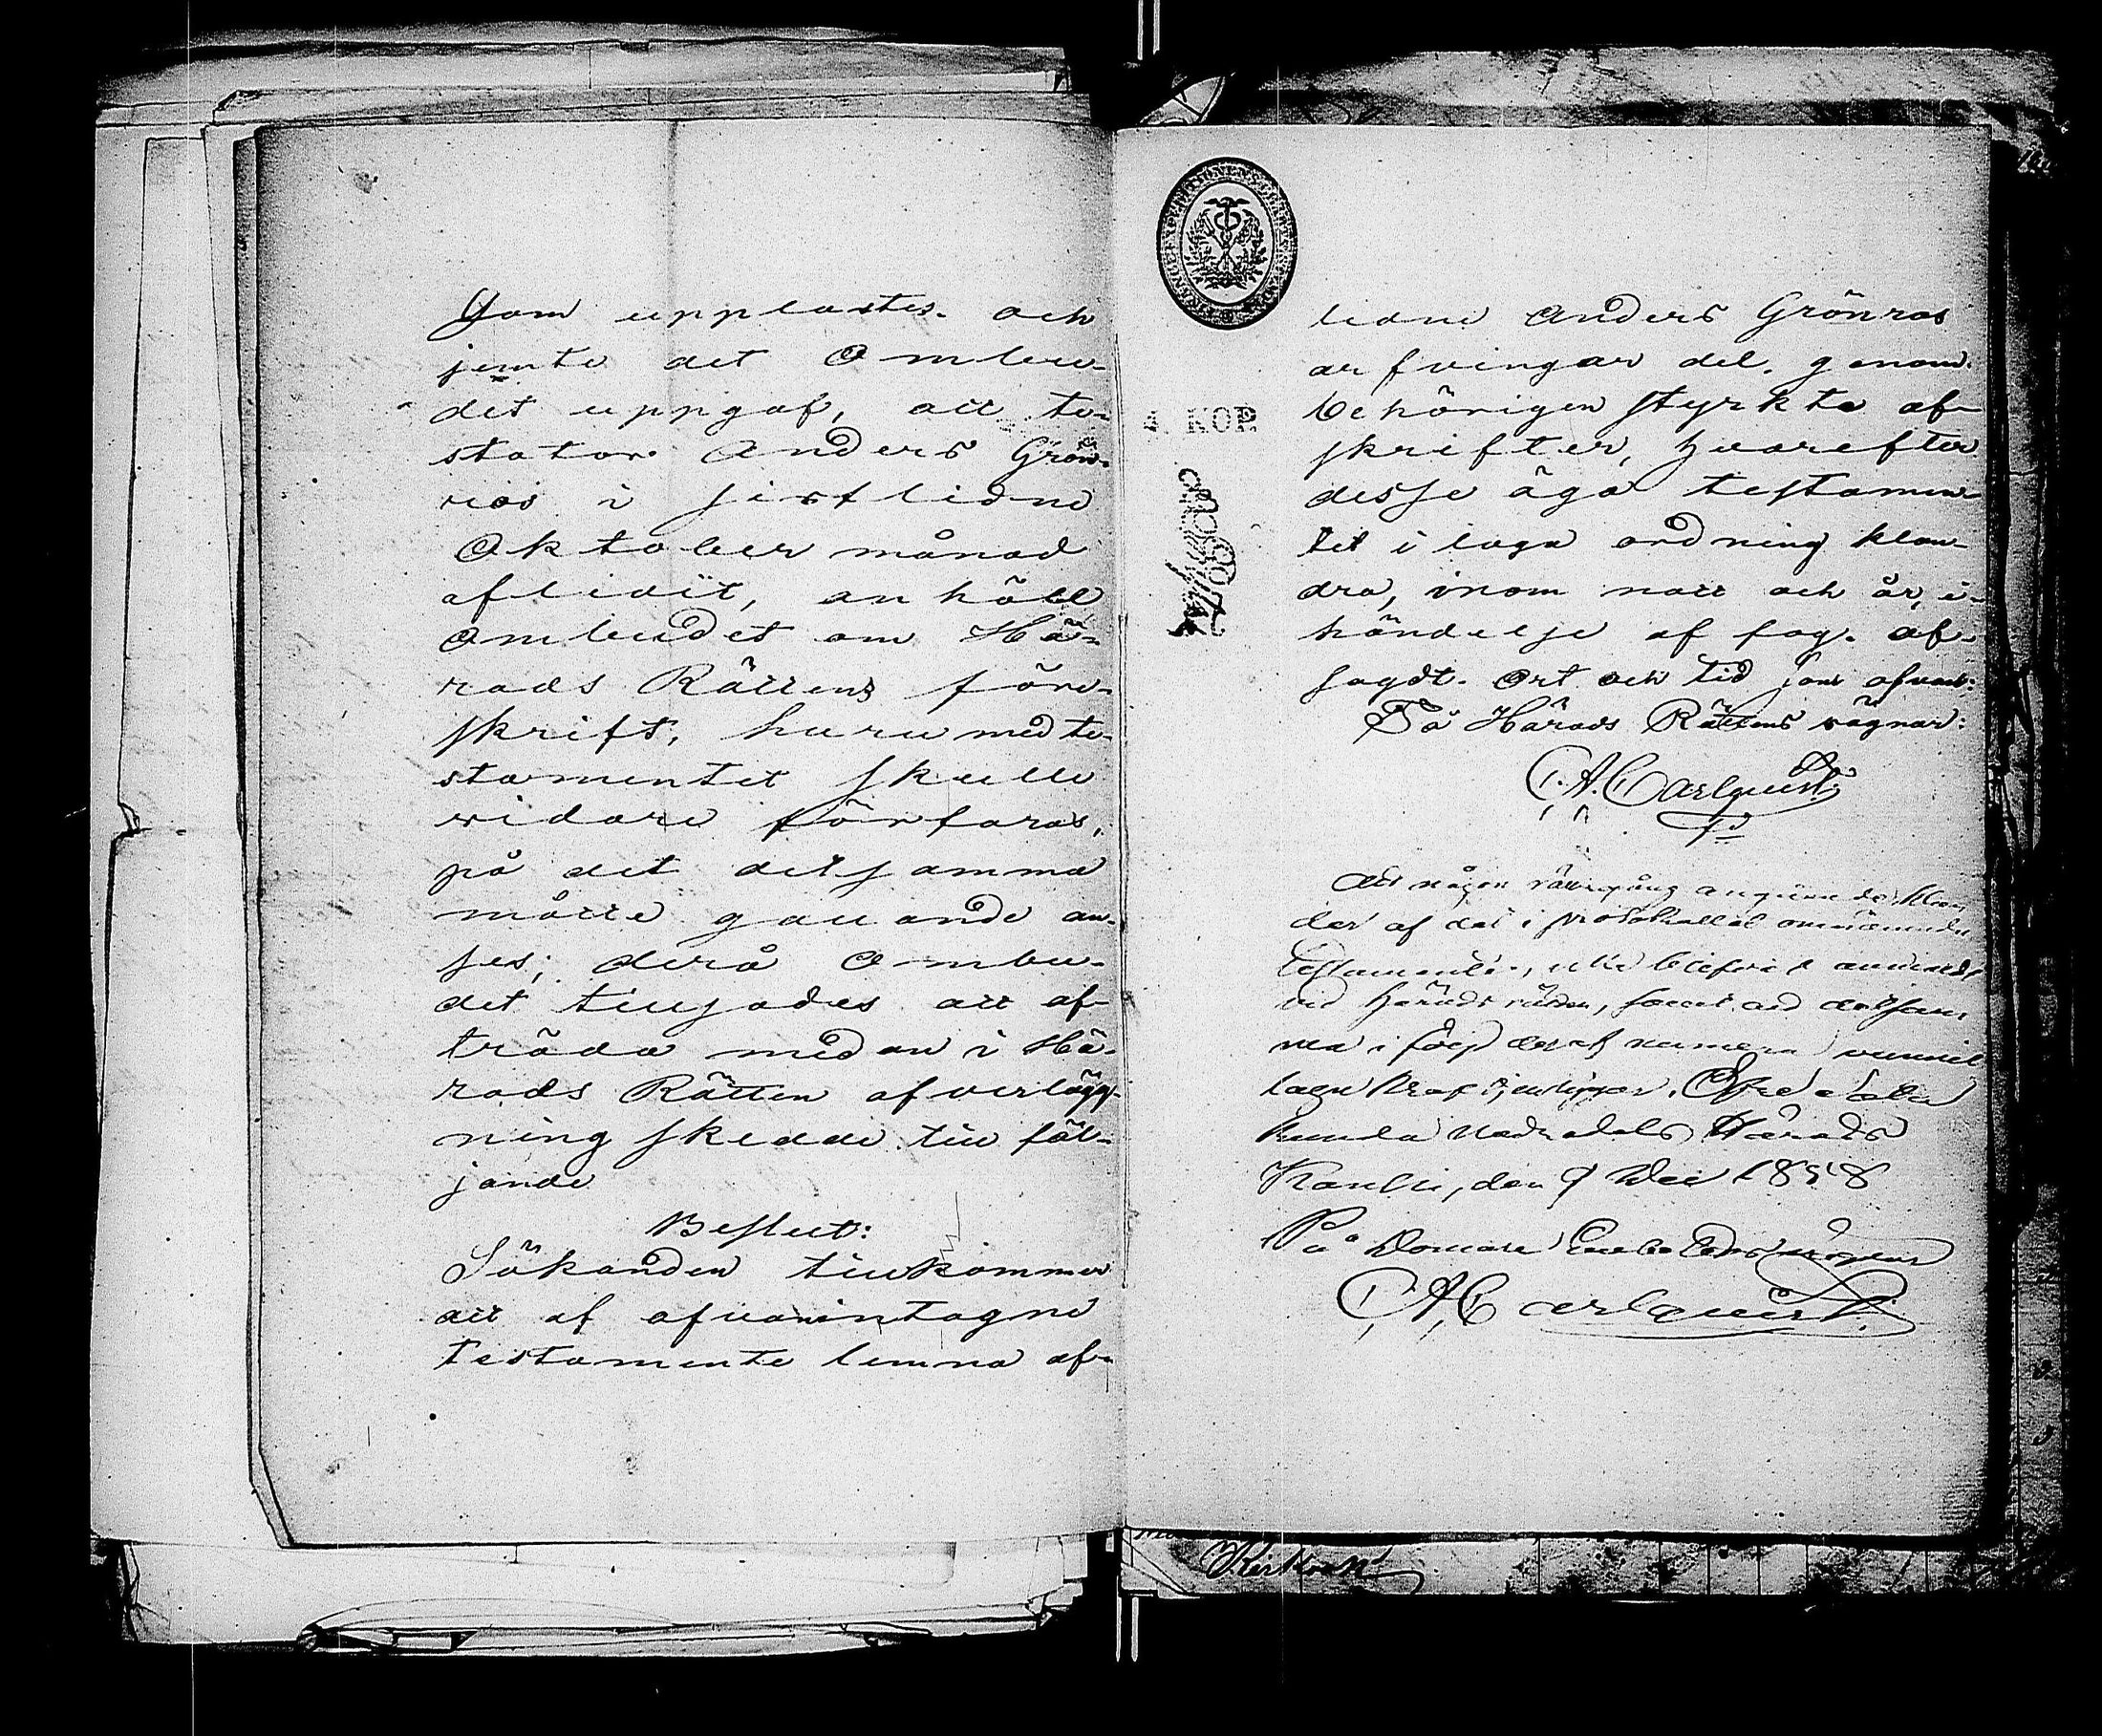 Som upplästes. och
jemte det Ombu-
det uppgaf, att te-
stator Anders Grön-
ros i sistlidne
Oktober månad
aflidit, anhöll
Ombudet om Hä-
rads Rättens före-
skrift, huru med te-
stamentet skulle
vidare förfaras,
på det detsamma
måtte gällande an-
ses; derå Ombu-
det tillsades att af-
träda medan i Hä-
rads Rätten öfverlägg-
ning skedde till föl-
jande
Beslut:
Sökanden tillkommer
att af ofvanintagne
testamente lemna af-
lidne Anders Grönros
arfvingar del. genom
behörigen styrkte af-
skrifter, hvarefter
desse äga testamen-
tet i laga ordning klan-
dra, inom natt och år, i-
händelse af fog. af-
sagdt. Ort och tid som ofvan:
På Härads Rättens vägnar:
C. A. Carlquist.
4. KOP.
Att någon rättegång angående klan
der af det i protokollet omnämnde
testamente, icke blifvit anmäldt
vid Häradsrätten, samt att detsam
ma i följd deraf numera vunnit
laga kraft,
Nedredels Härads
Kansli, den 9 1858
På Domare Embetets vägnar
C. A. Carlquist.